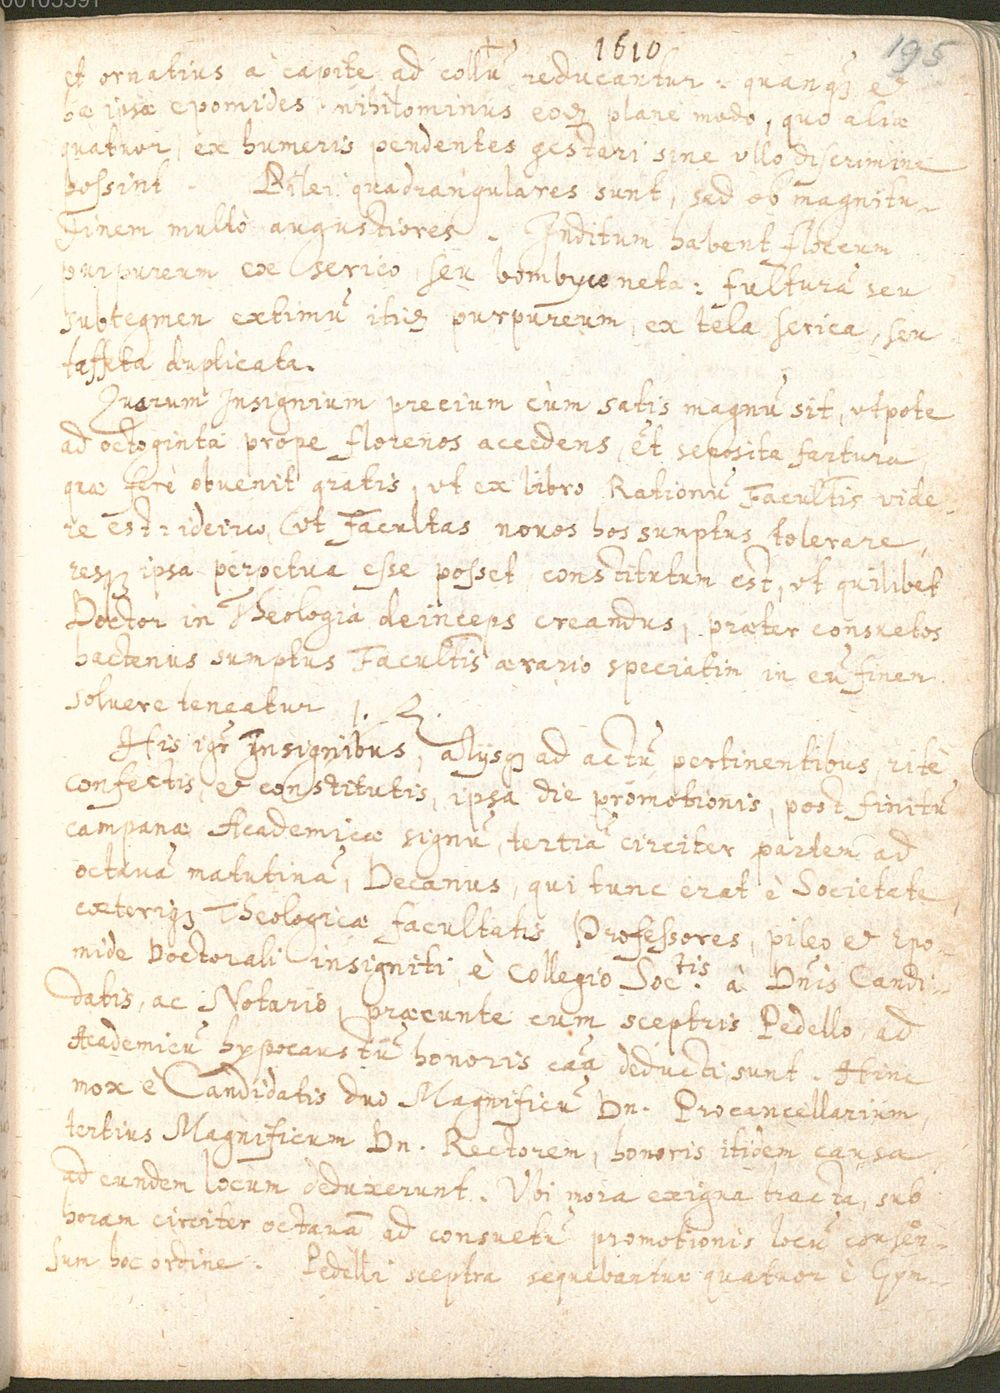 1610
195
et ornatius à capite ad collū reducantur: quanqȝ et
hæ ipsæ epomides nihilominus eodē plane modo, quo aliæ
quatuor, ex humeris pendentes gestari sine vllo discrimine
possint. Pilei quadrangulares sunt, sed ob magnitu-
dinem multò augustiores. Inditum habent floccum
purpureum ex serico seu bombyce neta: fulturā seu
subtegmen extimū itidē purpureum, ex tela serica, seu
taffeta duplicata.
Quarum Insignium precium cùm satis magnū sit, vtpote
ad octoginta prope florenos accedens, Et seposita fartura,
quæ ferè obuenit gratis, vt ex libro Rationū Facultis vide-
re est: idcirco, vt Facultas nouos hos sumptus tolerare,
resqȝ ipsa perpetua esse posset, constitutum est, vt quilibet
Doctor in Theologia deinceps creandus, præter consuetos
hactenus sumptus Facultis ærario speciatim in eū finem
soluere teneatur
His igr Insignibus, alijsqȝ ad actū pertinentibus, ritè
confectis, et constitutis, ipsa die promotionis, post finitū
campanæ Academicæ signū, tertiā circiter partem ad
octauā matutinā, Decanus, qui tunc erat è Societate,
cæteriqȝ Theologicæ facultatis Professores, pileo et Epo-
mide Doctorali insigniti, è Collegio Soctis. à Dnis Candi-
datis, ac Notario, præeunte cum sceptris Pedello, ad
Academicū hypocaustū honoris cāa deducti sunt. Hinc
mox è Candidatis duo Magnificū Dn. Procancellarium,
tertius Magnificum Dn. Rectorem, honoris itidem causa
ad eundem locum deduxerunt. Vbi mora exigua tracta, sub
horam circiter octauā ad consuetū promotionis locū consēn-
sum hoc ordine. Pedelli sceptra sequebantur quatuor è Gym-